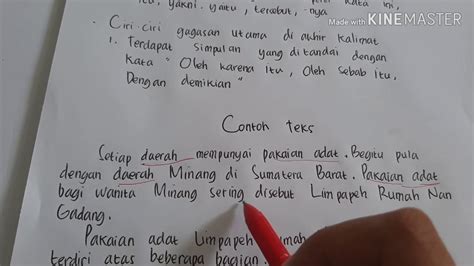 itu, yakni, yaitu, tersebut, -nya
Made with KINEMASTER
• Ciri-ciri gagasan utama di akhir kalimat
1. Terdapat simpulan yang ditandai dengan
kata " Oleh karena itu, Oleh sebab itu,
Dengan demikian "
Contoh Teks
Setiap daerah mempunyai pakaian adat. Begitu pula
dengan daerah Minang di Sumatera Barat. Pakaian adat
bagi wanita Minang sering disebut Limpapeh Rumah Nan
Gadang.
Pakaian adat Limpapeh Rumah
terdiri atas beberapa bagian.